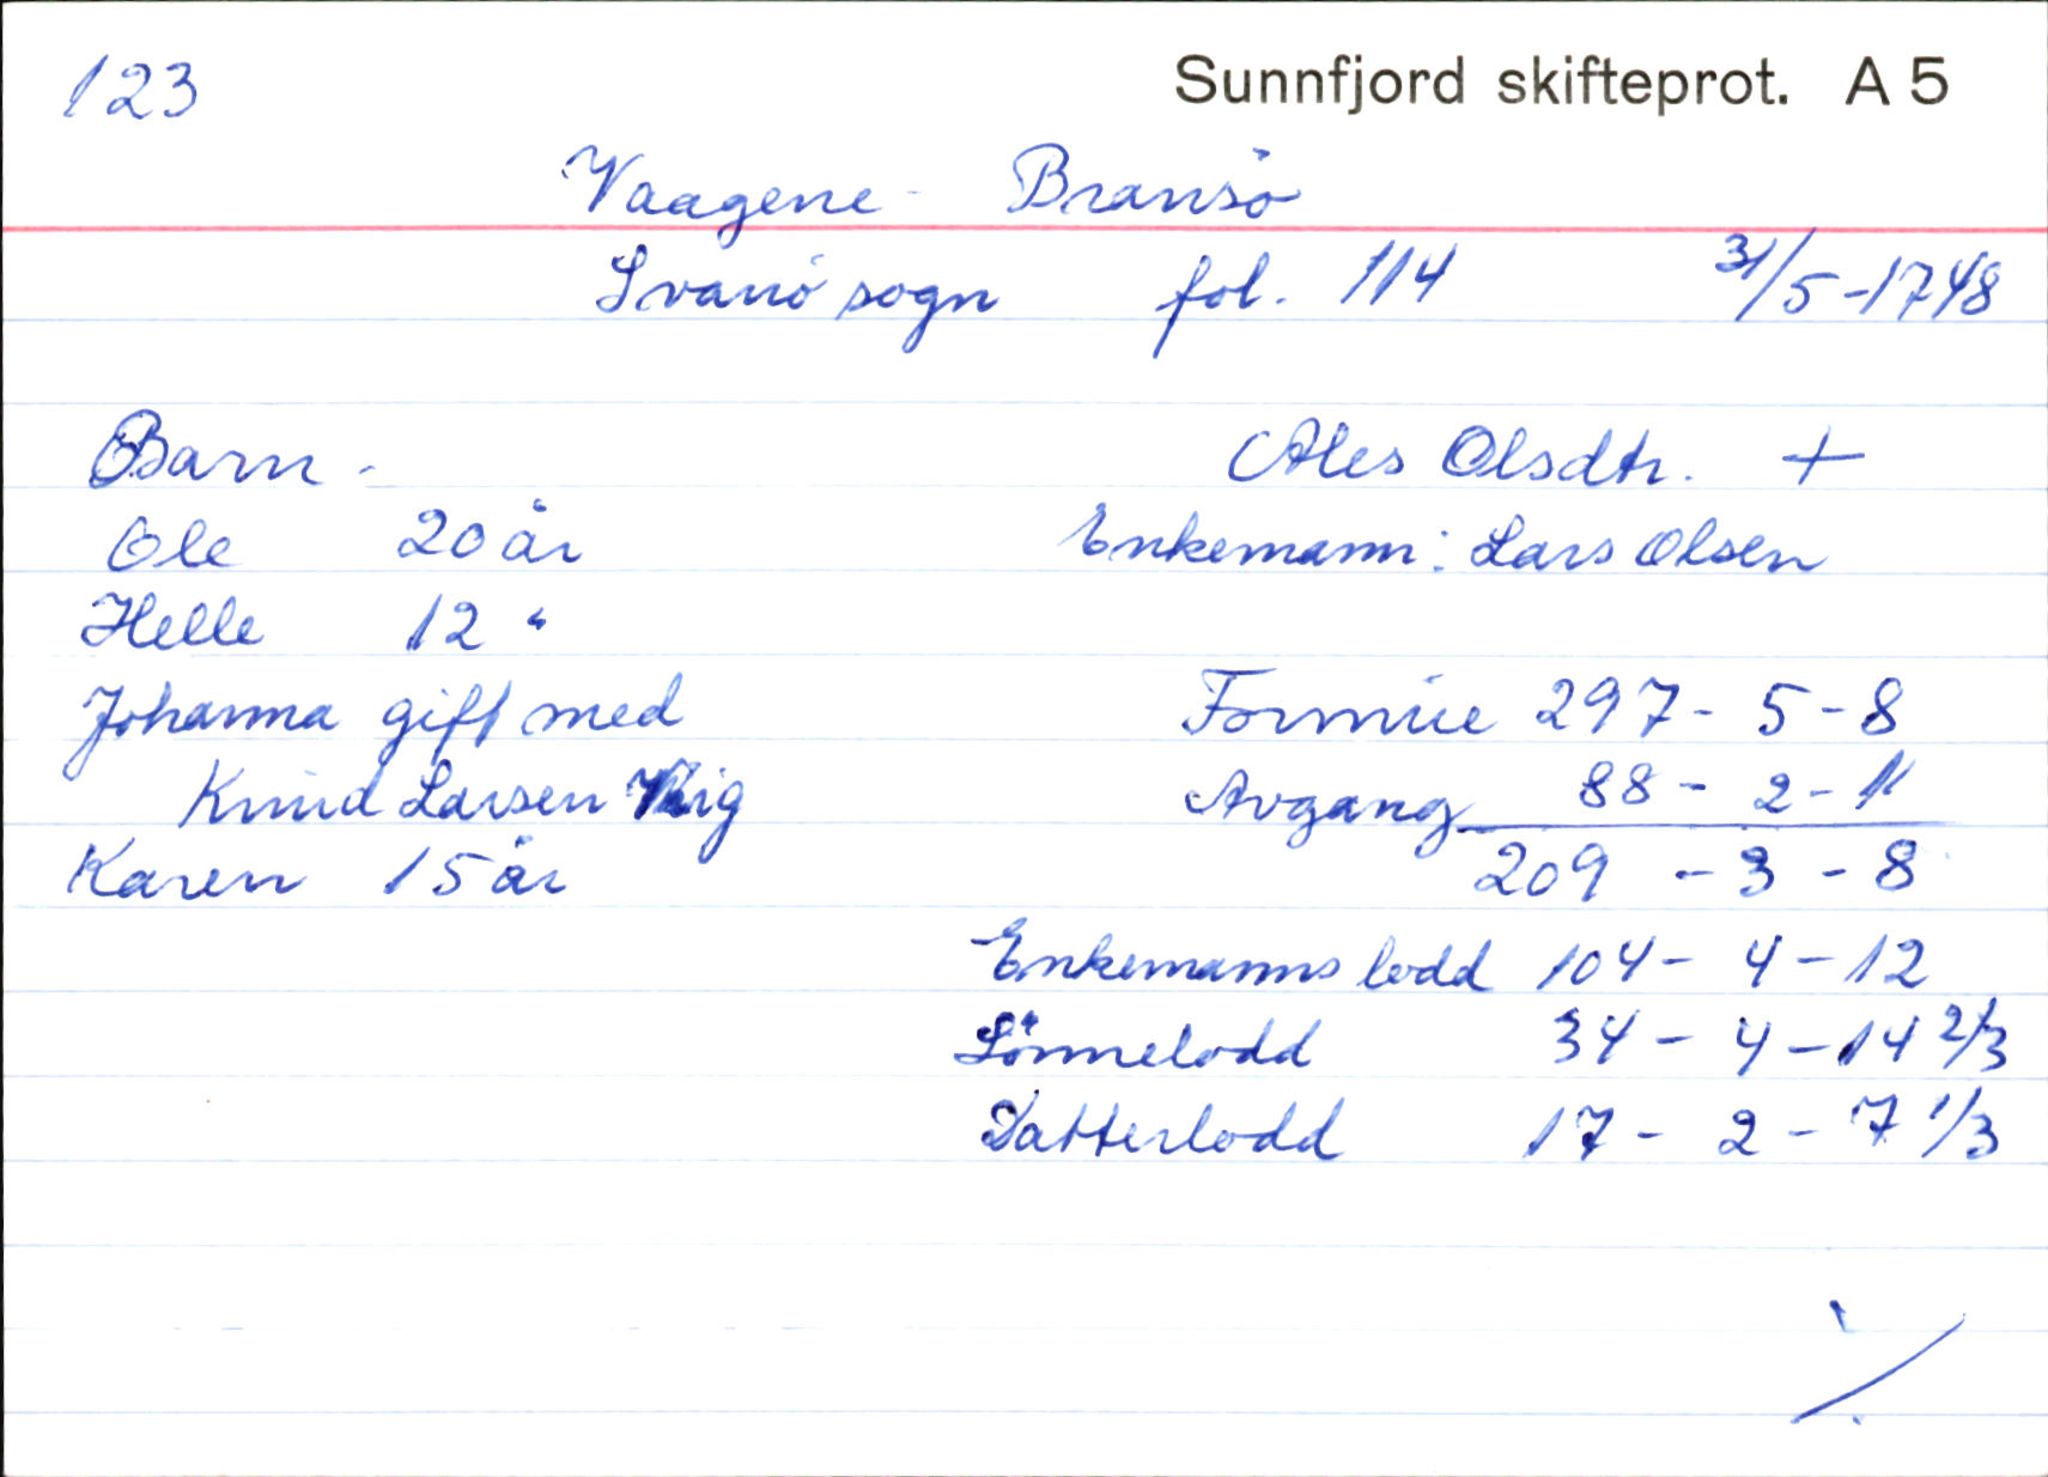 123
Sunnfjord skifteprot. A 5
Vaagene - Bransö
Svanö sogn fol. 114 31/5-1748
Barn - Ales Olsdtr. +
Ole 20 år Enkemann: Lars Olsen
Helle 12 "
Johanna gift med Formue 297 - 5 - 8
Knud Larsen Avgang 88 - 2 - "
Karen 15 år 209 - 3 - 8
Enkemanns lodd 104 - 4 - 12
Sönnelodd 34 - 4 - 14 2/3
Datterlodd 17 - 2 - 7 1/3